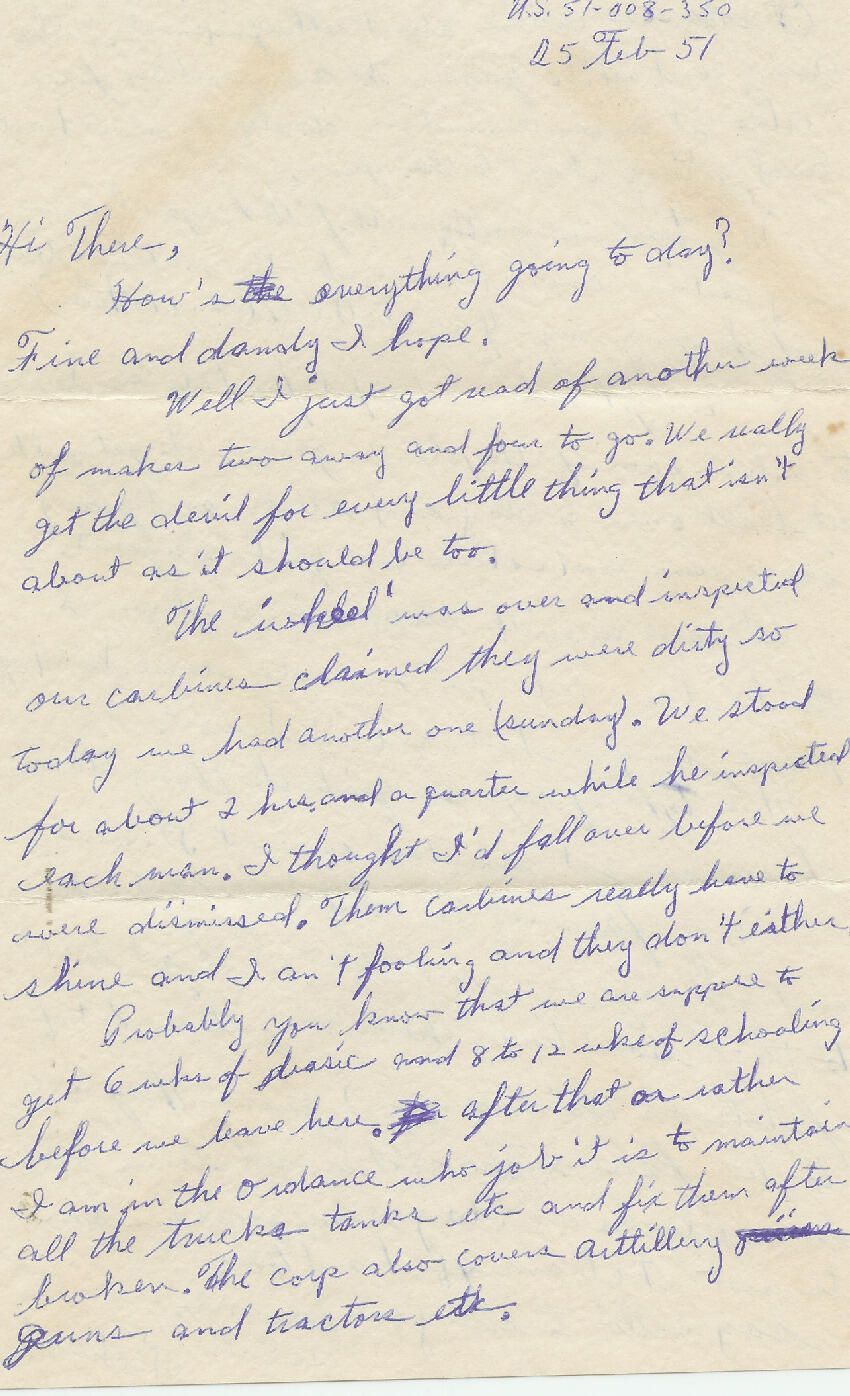 U.S. 51-008-350
25 Feb 51
Hi There,
How's the everything going to day?
Fine and dandy I hope.
Well I just got read of another week
of makes two away and four to go. We really
get the devil for every little thing that isn't
about as it should be too.
The 'wheel' was over and inspected
our carbines claimed they were dirty so
today we had another one (sunday). We stood
for about 2 hrs. and a quarter while he inspected
each man. I thought I'd fall over before we
were dismissed. Them carbines really have to
shine and I an't fooling and they don't either
Probably you know that we are suppose to
get 6 wks of basic and 8 to 12 wks of schooling
before we leave here. after that or rather
I am in the Ordance who job it is to maintain
all the trucks tanks etc and fix them after
broken. The corp also covers arttillery
guns and tractors etc.